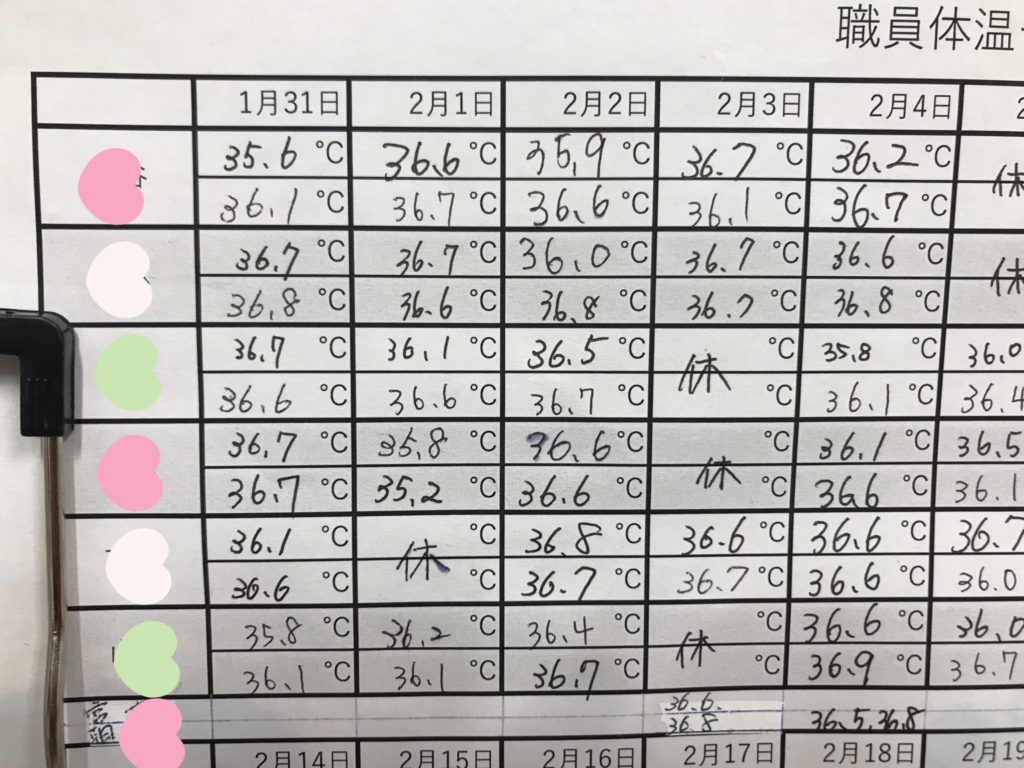 職員体温
1月31日 2月1日 2月2日 2月3日 2月4日
35.6 ℃ 36.6 ℃ 35.9 ℃ 36.7 ℃ 36.2 ℃ 休
36.1 ℃ 36.7 ℃ 36.6 ℃ 36.1 ℃ 36.7 ℃
36.7 ℃ 36.7 ℃ 36.0 ℃ 36.7 ℃ 36.6 ℃ 休
36.8 ℃ 36.6 ℃ 36.8 ℃ 36.7 ℃ 36.8 ℃
36.7 ℃ 36.1 ℃ 36.5 ℃ 休 ℃ 35.8 ℃ 36.0
36.6 ℃ 36.6 ℃ 36.7 ℃ ℃ 36.1 ℃ 36.4
36.7 ℃ 35.8 ℃ 36.6 ℃ 休 ℃ 36.1 ℃ 36.5
36.7 ℃ 35.2 ℃ 36.6 ℃ ℃ 366 ℃ 36.1
36.1 ℃ 休 ℃ 36.8 ℃ 36.6 ℃ 36.6 ℃ 36.7
36.6 ℃ ℃ 36.7 ℃ 36.7 ℃ 36.6 ℃ 36.0
35.8 ℃ 36.2 ℃ 36.4 ℃ 休 ℃ 36.6 ℃ 36.0
36.1 ℃ 36.1 ℃ 36.7 ℃ ℃ 36.9 ℃ 36.7
36.6.
36.8 36.5.36.8
2月14日 2月15日 2月16日 2月17日 2月18日 2月19